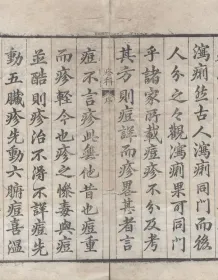 瀉痢然古人瀉痢同門而後
人分之々觀瀉痢果可同門
乎諸家所載痘疹不分及考
其方則痘詳而疹畧其者言
痘不言疹此無他昔也痘重
而疹輕今也疹之慘毒與痘
並酷則疹治不得不詳痘先
動五臟疹先動六腑痘喜溫